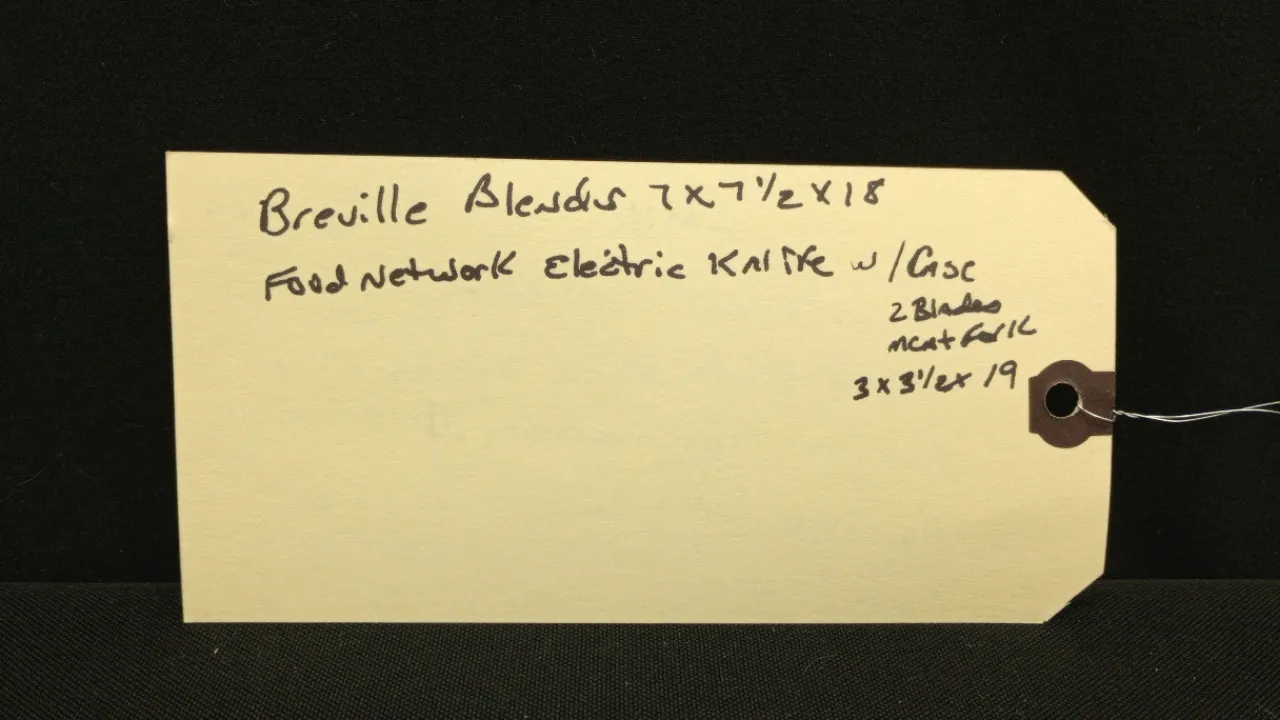 Breville Blender 7 x 7 1/2 x 18
Food Network Electric Knife w/Case
2 Blades
meat Fork
3 x 3 1/2 x 19